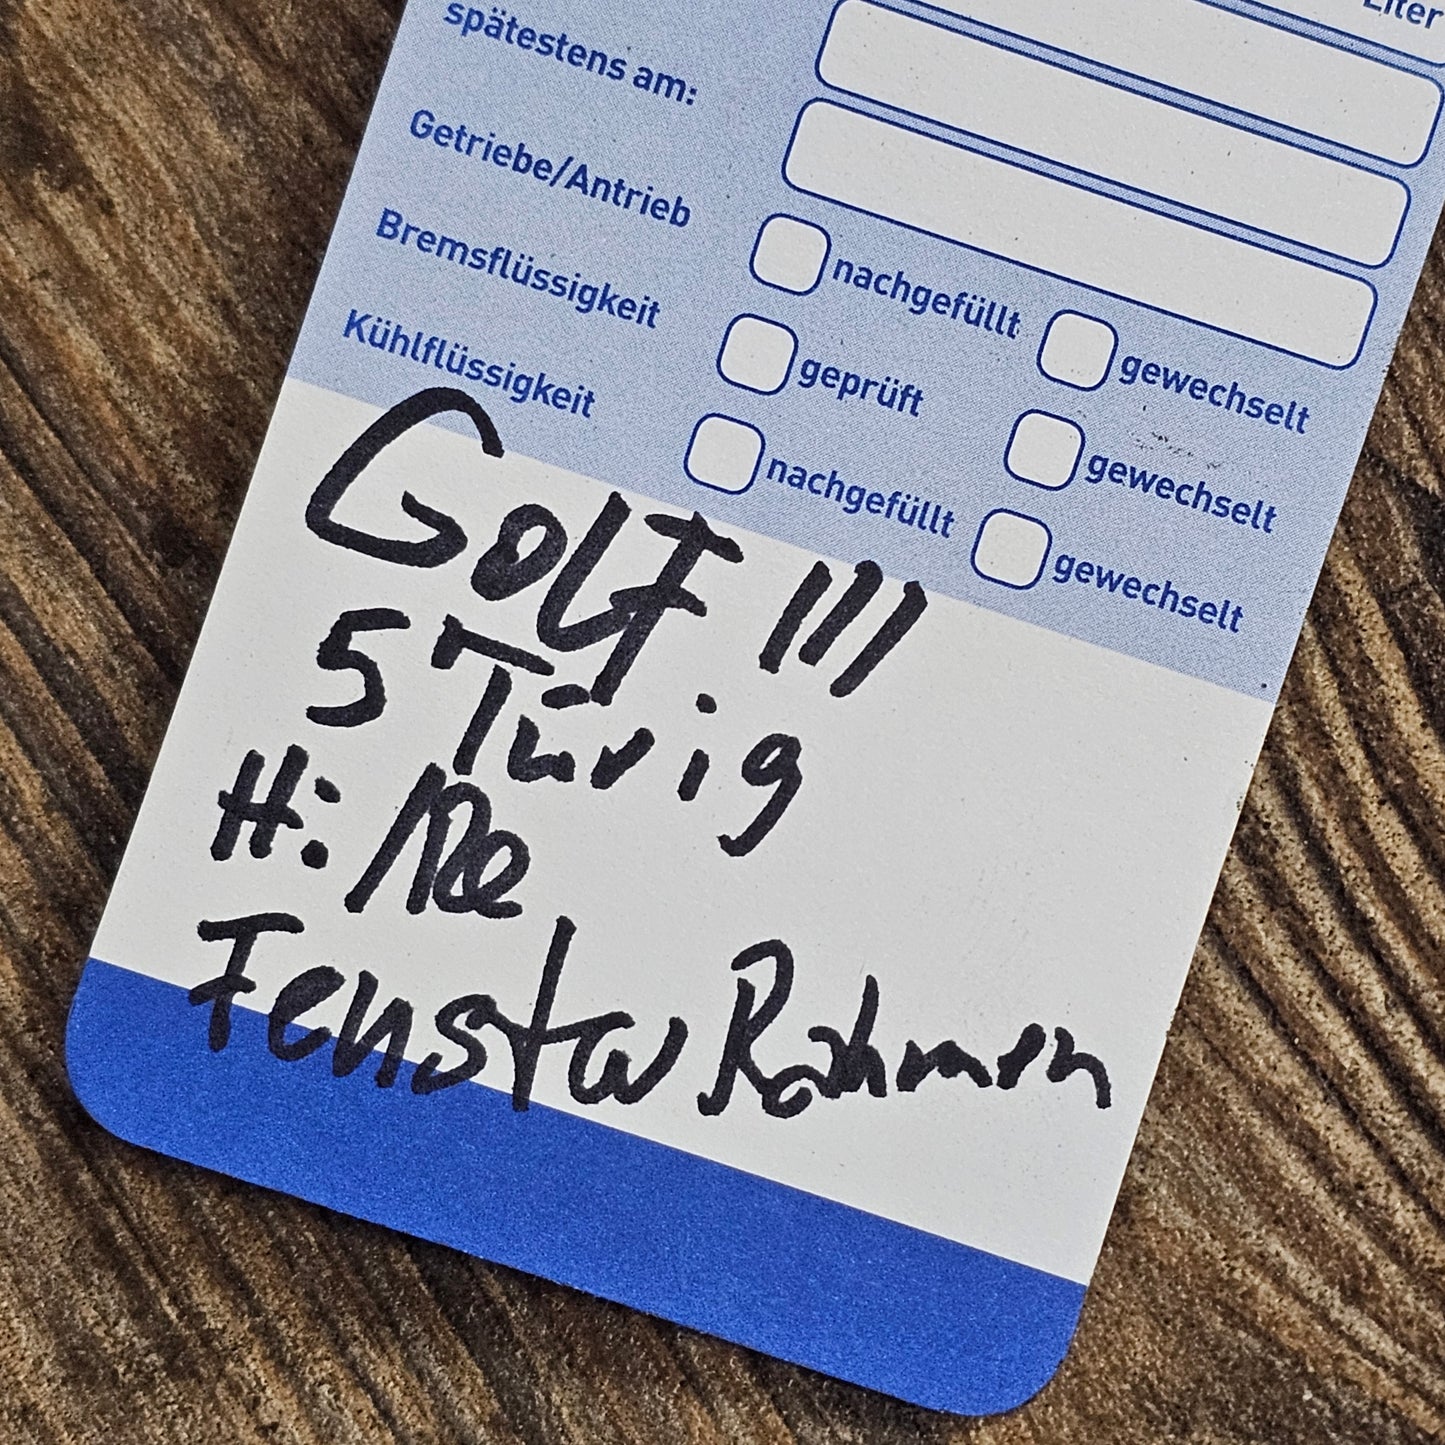 Liter
spätestens am:
Getriebe/Antrieb
nachgefüllt gewechselt
Bremsflüssigkeit
geprüft gewechselt
Kühlflüssigkeit
nachgefüllt gewechselt
Golf III
5 Türig
H:
Fenster Rahmen